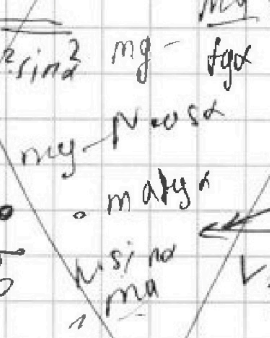 ²sinα²
mg- tgα
mg-Ncosα
matgα
Nsinα
ma